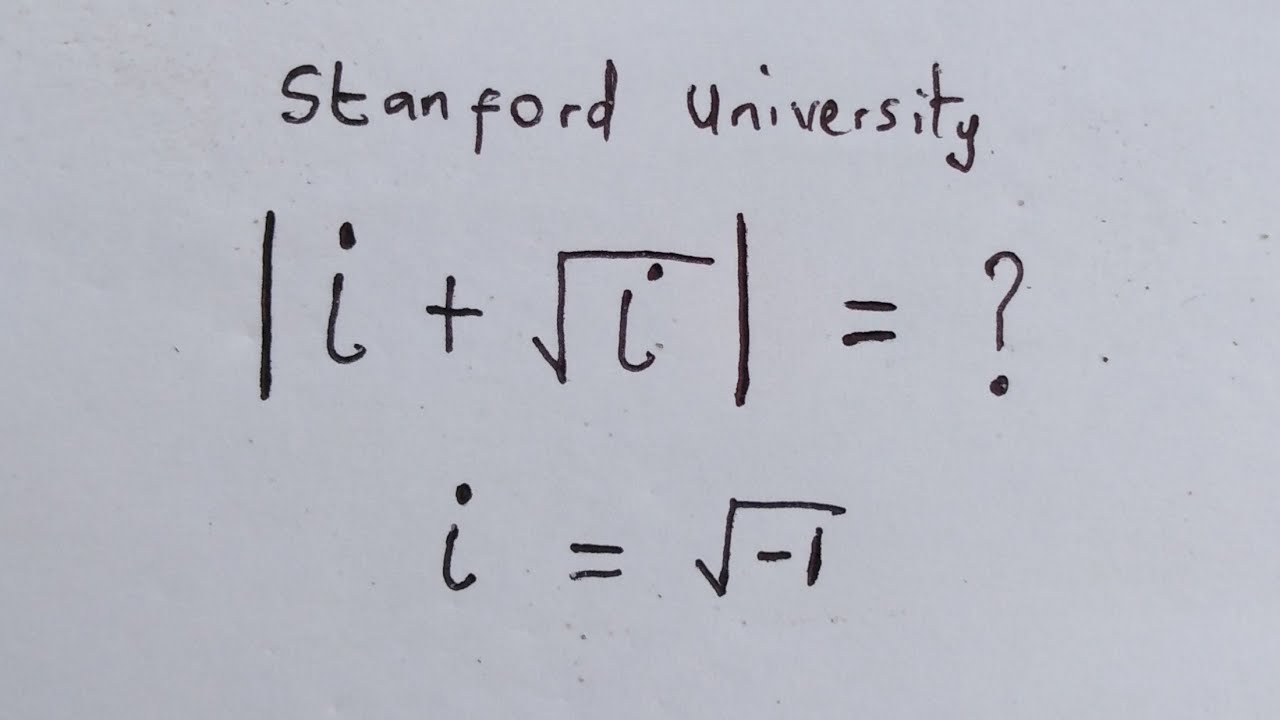 Stanford University
| i + √i | = ?
i = √-1